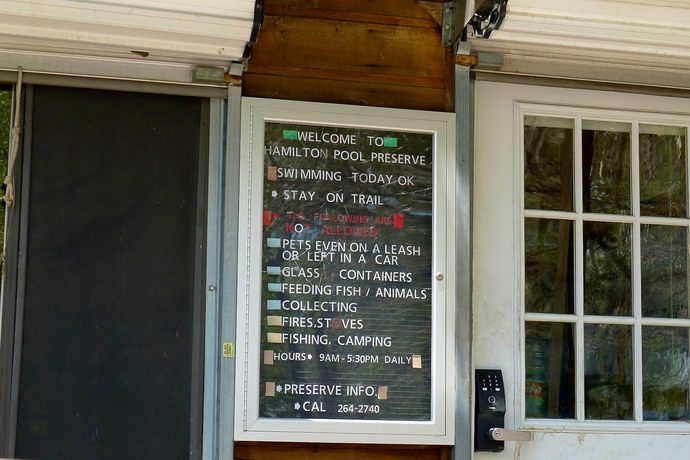 WELCOME TO
HAMILTON POOL PRESERVE
SWIMMING TODAY OK
STAY ON TRAIL
THE FOLLOWING ARE
NOT ALLOWED
PETS EVEN ON A LEASH
OR LEFT IN A CAR
GLASS CONTAINERS
FEEDING FISH / ANIMALS
COLLECTING
FIRES.STOVES
FISHING, CAMPING
HOURS 9AM-5:30PM DAILY
PRESERVE INFO.
CAL 264-2740